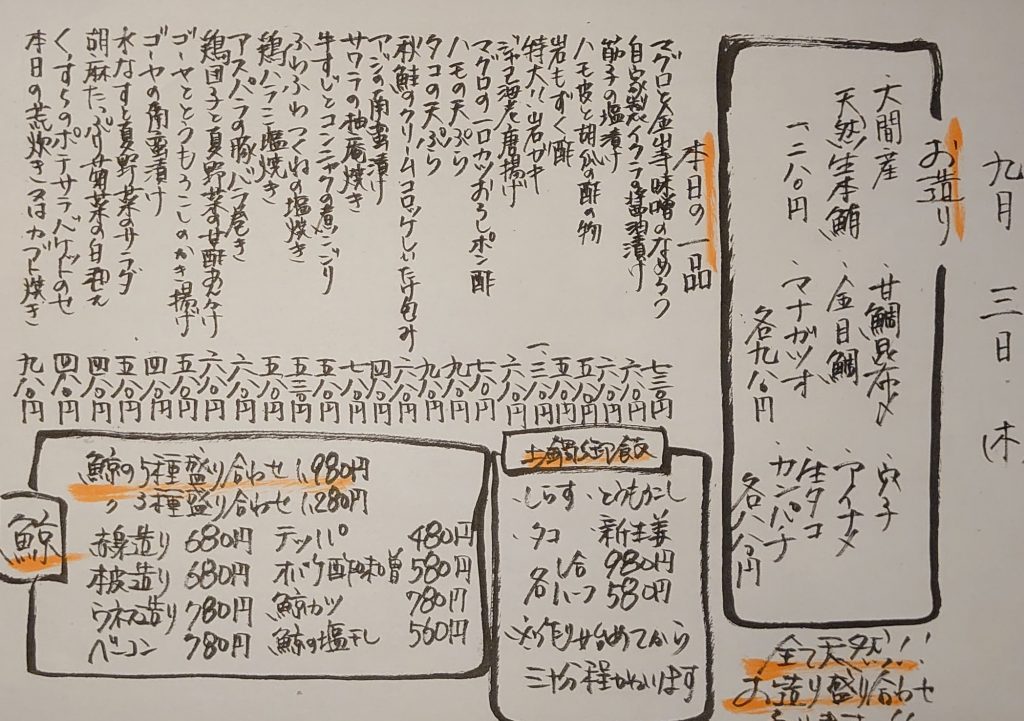 九月 三日 (木)
お造り
大間産
天然生本鮪
一二八〇円
・甘鯛昆布〆
・金目鯛
・マナガツオ
各九八〇円
・穴子
・アイナメ
・生タコ
・カンパチ
各八八〇円
全て天然!!
お造り盛り合わせ
本日の一品
マグロと金山寺味噌のなめろう 七三〇円
自家製イクラの醤油漬け 六八〇円
筋子の塩漬け 五八〇円
ハモ皮と胡瓜の酢の物 五八〇円
岩もずく酢
特大!!岩ガキ
ジャコ海老唐揚げ 六八〇円
マグロの一口カツおろしポン酢 七八〇円
ハモの天ぷら 九八〇円
タコの天ぷら 九八〇円
秋鮭のクリームコロッケしいたけ包み 六八〇円
アジの南蛮漬け 四八〇円
サワラの柚庵焼き 七八〇円
牛すじとコンニャクの煮こごり 五八〇円
ふわふわつくねの塩焼き 五三〇円
鶏ハラミ塩焼き 五八〇円
アスパラの豚バラ巻き 六八〇円
鶏団子と夏野菜の甘酢あんかけ 六八〇円
ゴーヤととうもろこしのかき揚げ 五八〇円
ゴーヤの南蛮漬け 四八〇円
水なすと夏野菜のサラダ 五八〇円
胡麻たっぷり菊菜の白和え 四八〇円
くずらのポテサラバケットのせ 四八〇円
本日の荒炊き又はカブト焼き 九八〇円
土鍋御飯
・しらす ・とうもろこし
・タコ ・新生姜
各一合 980円
各ハーフ 580円
※作り始めてから
三十分程かかります
鯨
鯨の5種盛り合わせ 1,980円
〃 3種盛り合わせ 1,280円
赤身造り 680円
本皮造り 680円
ウネス造り 780円
ベーコン 780円
テッパ 480円
オバケ酢味噌 580円
鯨カツ 780円
鯨の塩干し 560円